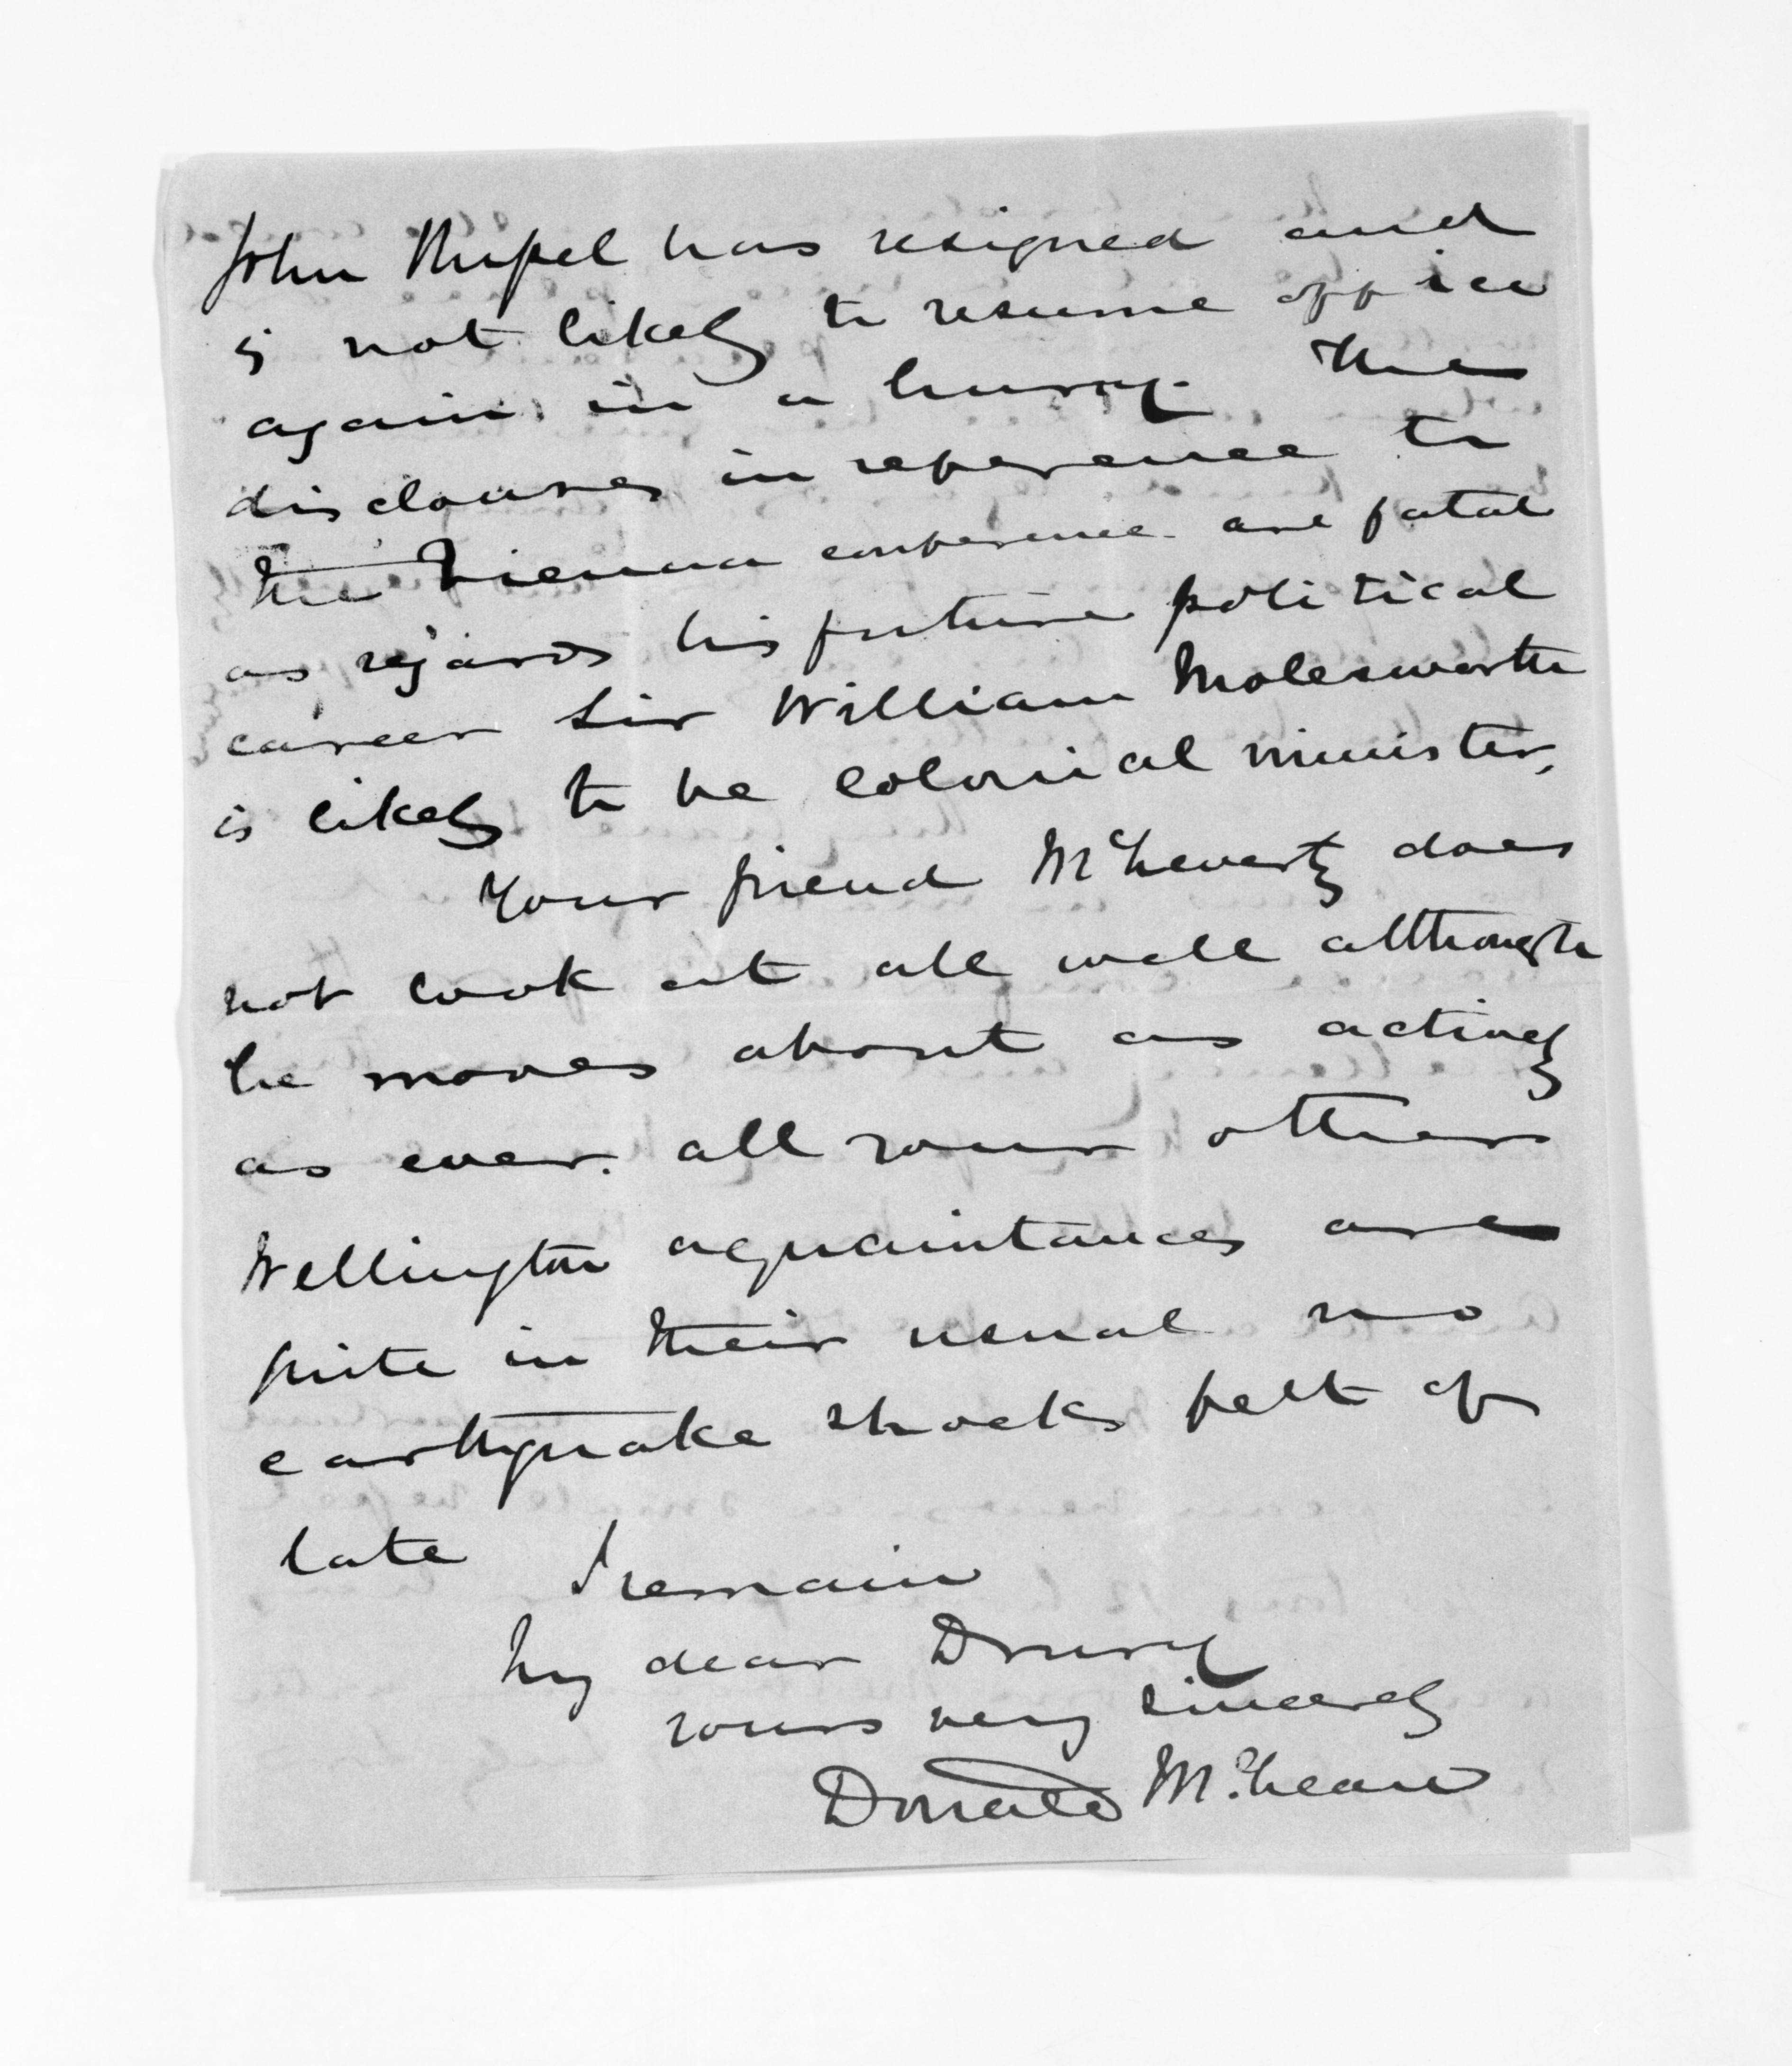 John Russel has resigned and
is not likely to resume office
again in a hurry. The
disclousres in reference to
the Vienna conference are fatal
as regards his future political
career Sir William Molesworth
is likely to be colonial minister,
Your friend McCleverty does
not look at all well although
he moves about as actively
as ever. all your other
Wellington aquaintances are
quite in their usual no
earthquake shocks felt of
late I remain
My dear Drury
yours very sincerely
Donald McLean